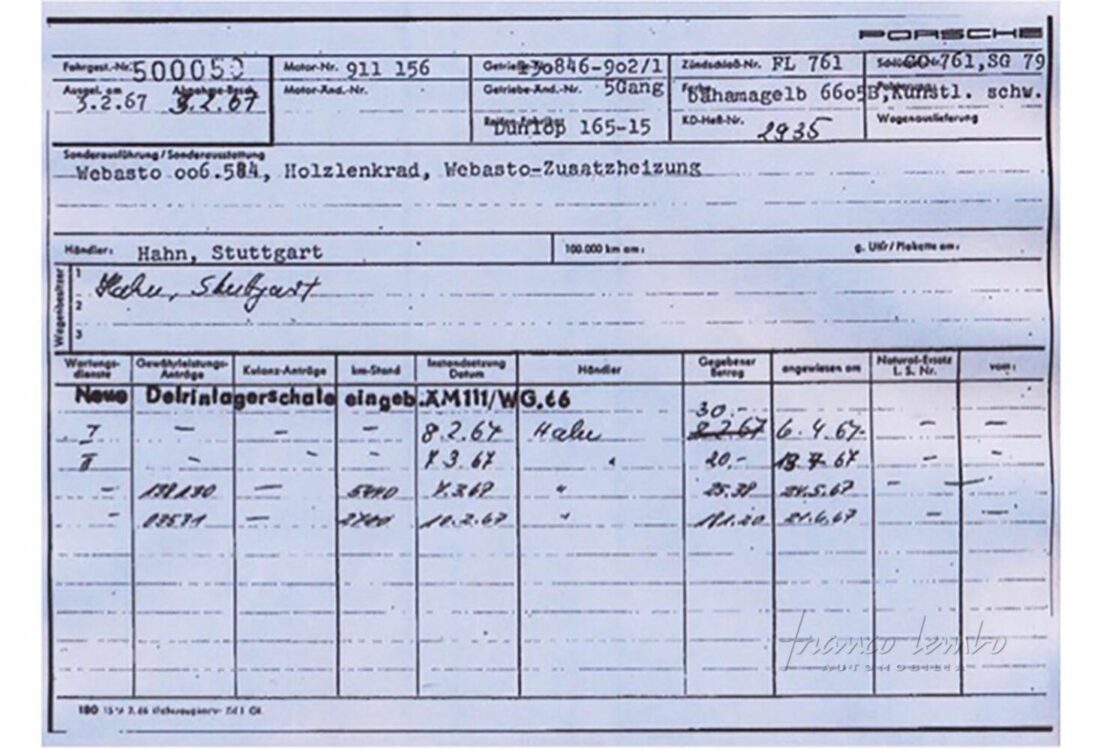 PORSCHE
Fahrgest.-Nr. 500050 Motor-Nr. 911 156 Getriebe-Nr. 130846-902/1 Zündschloß-Nr. FL 761 GO 761, SG 79
Ausgel. am 3.2.67 Abnahme-Besch. 3.2.67 Motor-Änd.-Nr. Getriebe-Änd.-Nr. 5Gang Farbe bahamagelb 6605B, Kunstl. schw.
Reifen-Fabrikat Dunlop 165-15 KD-Heft-Nr. 2935 Wagenauslieferung
Sonderausführung / Sonderausstattung
Webasto 006.584, Holzlenkrad, Webasto-Zusatzheizung
Händler: Hahn, Stuttgart 100.000 km am: g. Uhr / Plakette am:
Wagenbesitzer
1 Hahn, Stuttgart
2
3
Wartungs-dienste Gewährleistungs-Anträge Kulanz-Anträge km-Stand Instandsetzung Datum Händler Gegebener Betrag angewiesen am Natural-Ersatz L. S. Nr. vom:
Neue Delrinlagerschale eingeb. ÄM111/WG.66
I - - - 8.2.67 Hahn 30.- 8.2.67 6.4.67 - -
II - - - 7.3.67 " 20.- 13.7.67 - -
- 138130 - 7.3.67 " 25.38 24.5.67 - -
- 03571 - 2700 10.2.67 " 181.20 21.6.67 - -
franco lembo
AUTOMOBILIA
180